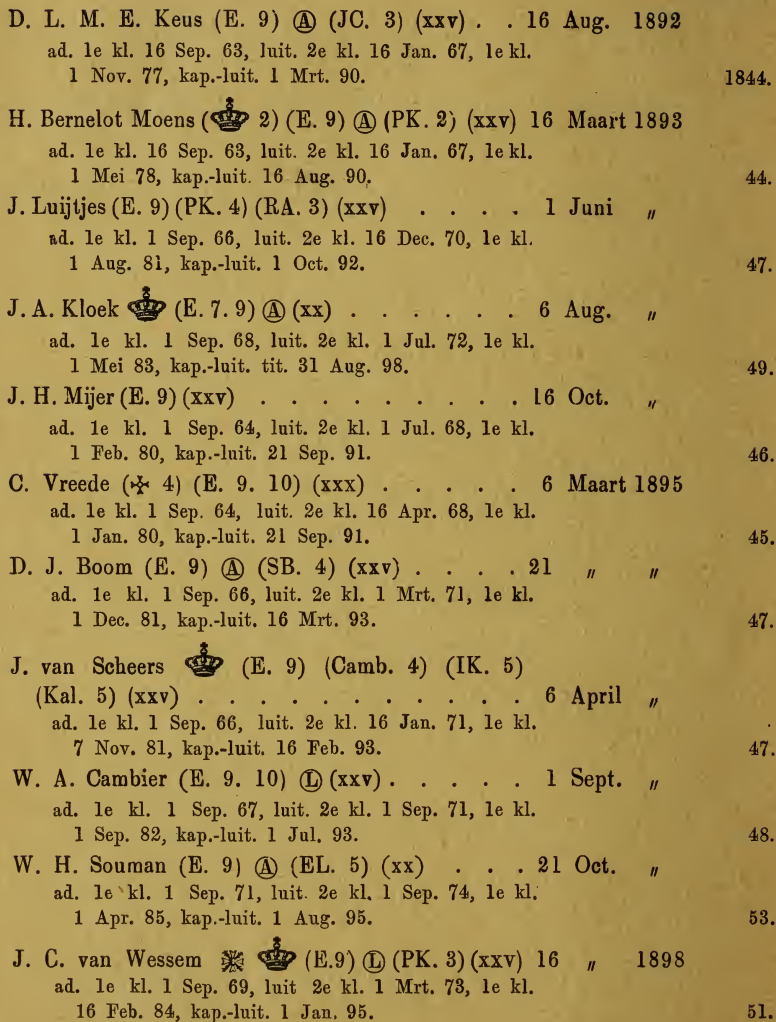 D. L. M. E. Keus (E. 9) Ⓐ (JC. 3) (xxv) . . 16 Aug. 1892
ad. 1e kl. 16 Sep. 63, luit. 2e kl. 16 Jan. 67, 1e kl.
1 Nov. 77, kap.-luit. 1 Mrt. 90. 1844.
H. Bernelot Moens ( 2) (E. 9) Ⓐ (PK. 2) (xxv) 16 Maart 1893
ad. 1e kl. 16 Sep. 63, luit. 2e kl. 16 Jan. 67, 1e kl.
1 Mei 78, kap.-luit. 16 Aug. 90. 44.
J. Luijtjes (E. 9) (PK. 4) (RA. 3) (xxv) . . . . 1 Juni „
ad. 1e kl. 1 Sep. 66, luit. 2e kl. 16 Dec. 70, 1e kl.
1 Aug. 81, kap.-luit. 1 Oct. 92. 47.
J. A. Kloek (E. 7. 9) Ⓐ (xx) . . . . . . 6 Aug. „
ad. 1e kl. 1 Sep. 68, luit. 2e kl. 1 Jul. 72, 1e kl.
1 Mei 83, kap.-luit. tit. 31 Aug. 98. 49.
J. H. Mijer (E. 9) (xxv) . . . . . . . . . 16 Oct. „
ad. 1e kl. 1 Sep. 64, luit. 2e kl. 1 Jul. 68, 1e kl.
1 Feb. 80, kap.-luit. 21 Sep. 91. 46.
C. Vreede (✣ 4) (E. 9. 10) (xxx) . . . . . 6 Maart 1895
ad. 1e kl. 1 Sep. 64, luit. 2e kl. 16 Apr. 68, 1e kl.
1 Jan. 80, kap.-luit. 21 Sep. 91. 45.
D. J. Boom (E. 9) Ⓐ (SB. 4) (xxv) . . . . 21 „ „
ad. 1e kl. 1 Sep. 66, luit. 2e kl. 1 Mrt. 71, 1e kl.
1 Dec. 81, kap.-luit. 16 Mrt. 93. 47.
J. van Scheers (E. 9) (Camb. 4) (IK. 5)
(Kal. 5) (xxv) . . . . . . . . . . . 6 April „
ad. 1e kl. 1 Sep. 66, luit. 2e kl. 16 Jan. 71, 1e kl.
7 Nov. 81, kap.-luit. 16 Feb. 93. 47.
W. A. Cambier (E. 9. 10) Ⓛ (xxv) . . . . . 1 Sept. „
ad. 1e kl. 1 Sep. 67, luit. 2e kl. 1 Sep. 71, 1e kl.
1 Sep. 82, kap.-luit. 1 Jul. 93. 48.
W. H. Souman (E. 9) Ⓐ (EL. 5) (xx) . . . 21 Oct. „
ad. 1e kl. 1 Sep. 71, luit. 2e kl. 1 Sep. 74, 1e kl.
1 Apr. 85, kap.-luit. 1 Aug. 95. 53.
J. C. van Wessem (E.9) Ⓛ (PK. 3) (xxv) 16 „ 1898
ad. 1e kl. 1 Sep. 69, luit 2e kl. 1 Mrt. 73, 1e kl.
16 Feb. 84, kap.-luit. 1 Jan. 95. 51.